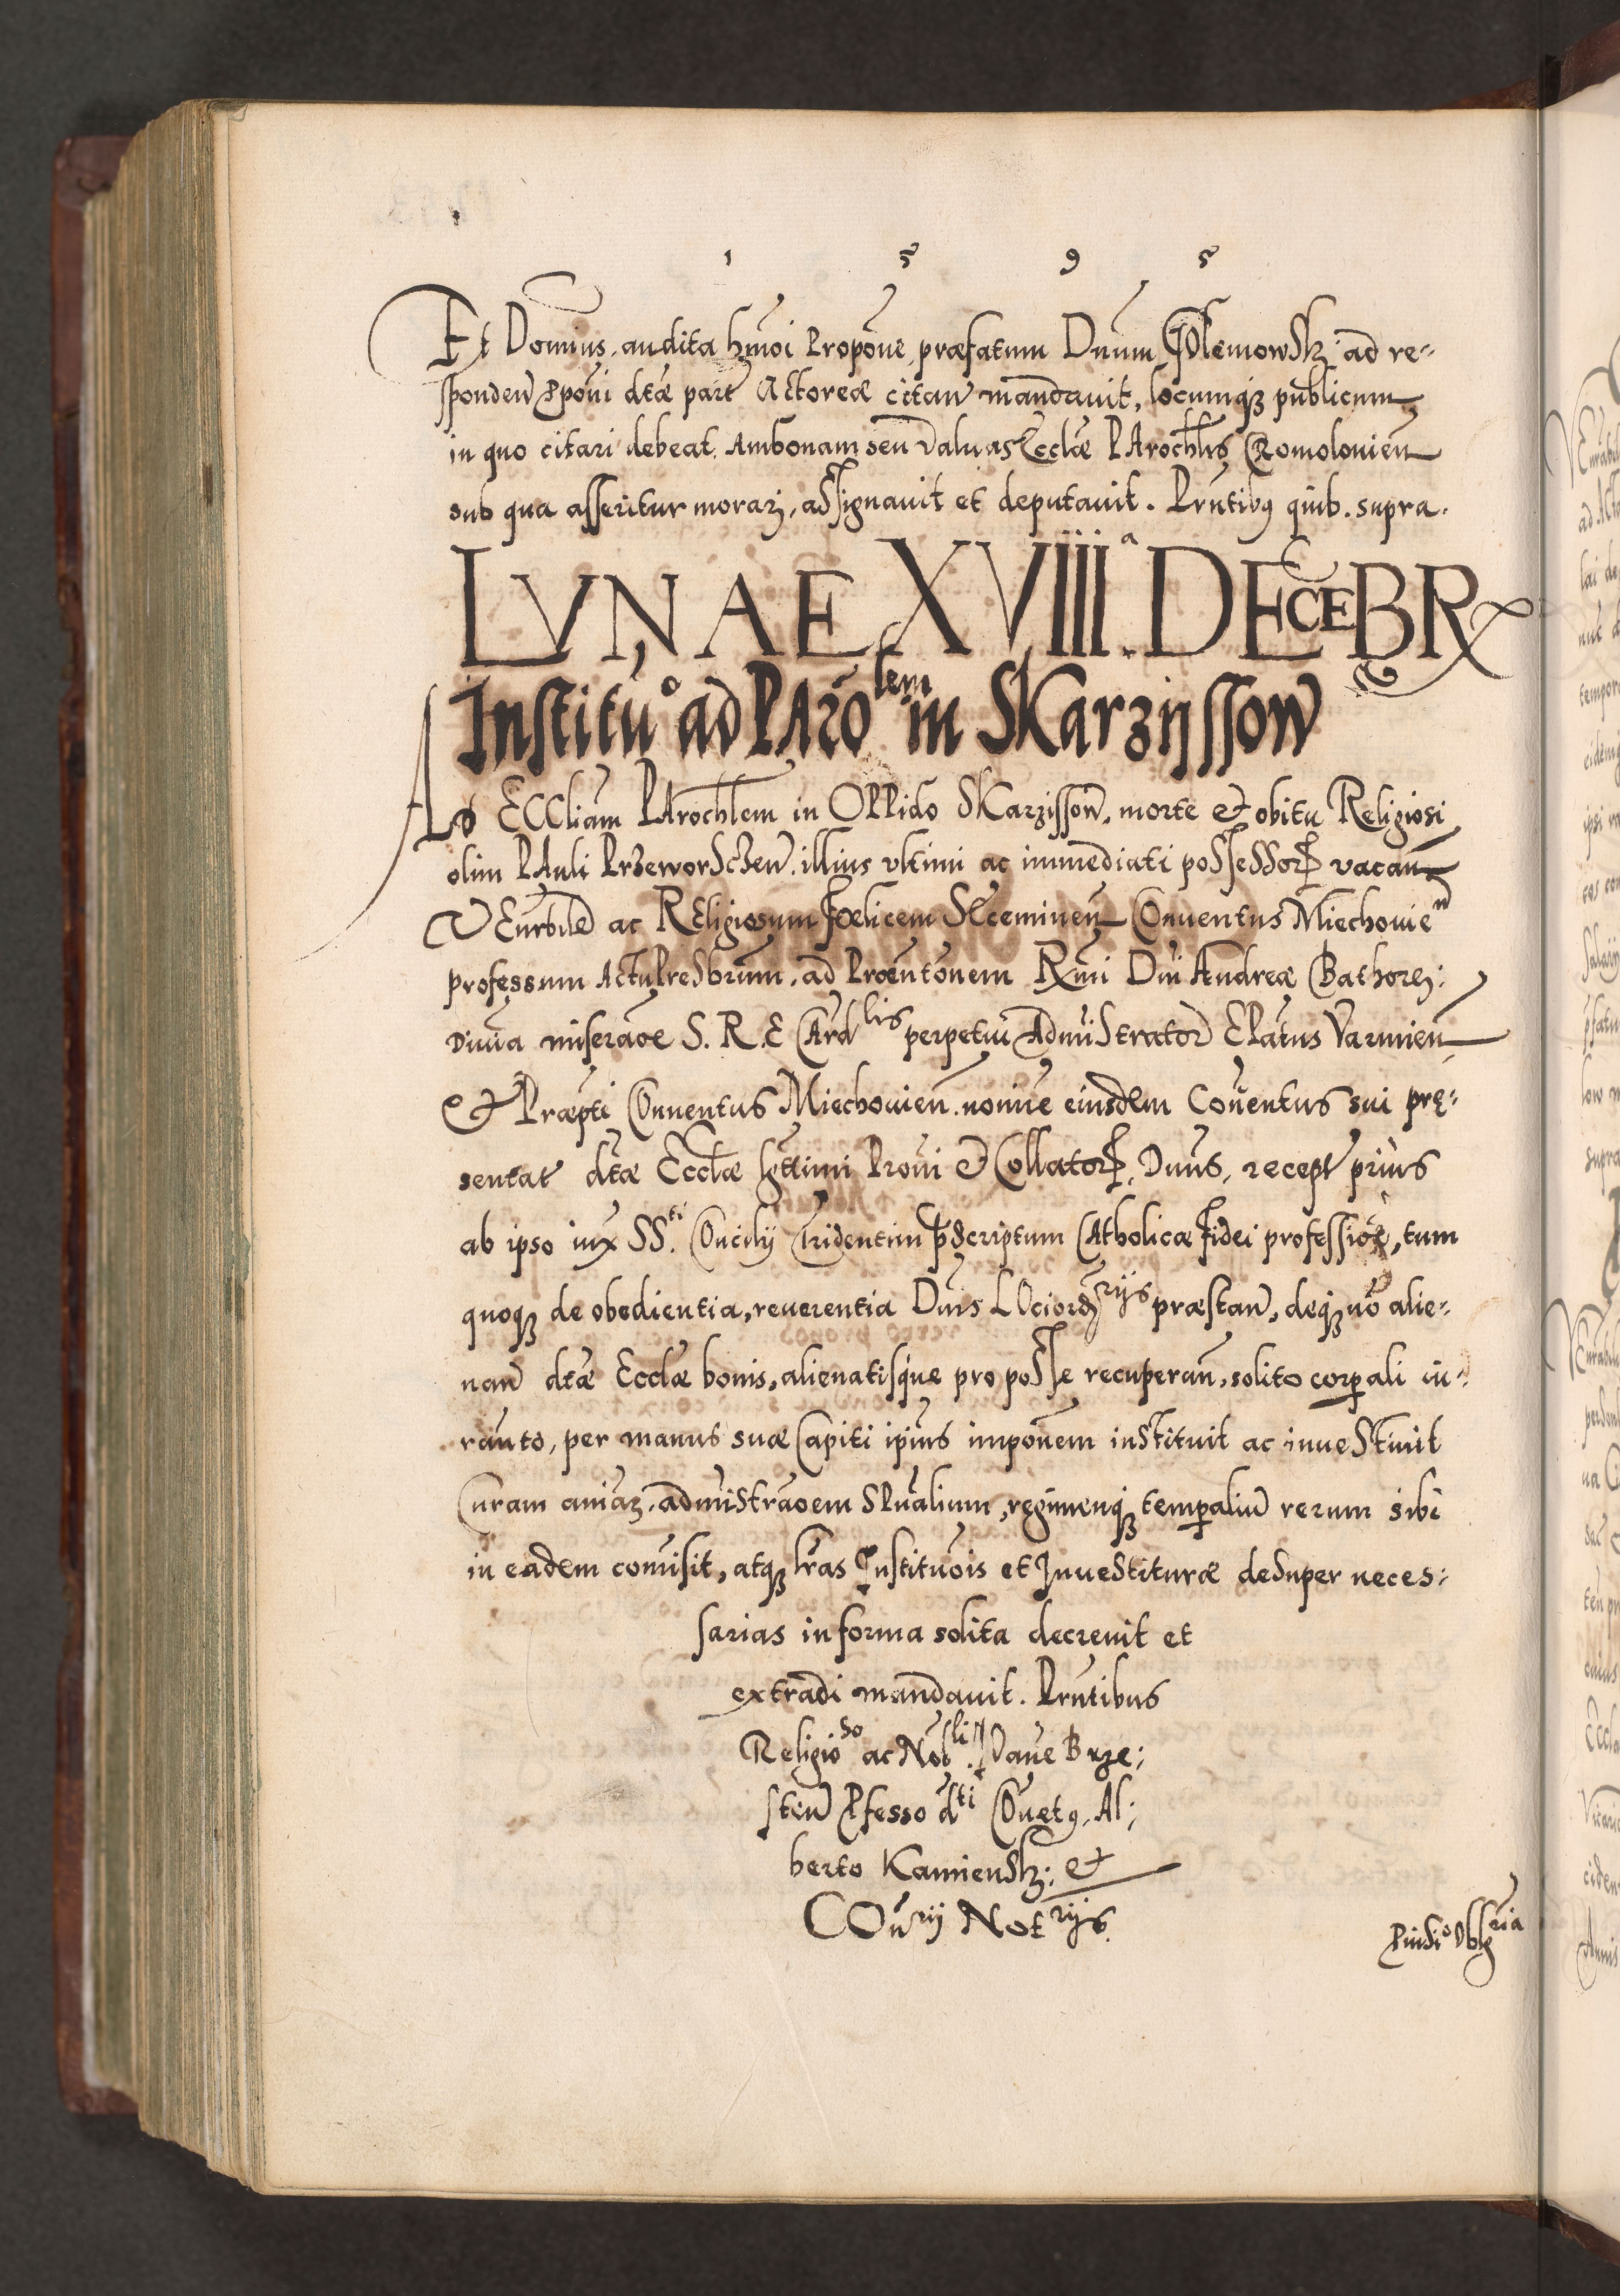 1 5 9 5
Et Domin⁹ audita hmōi Propōne præfatum Dnūm Jolemowsk: ad re-
sponden ꝓpōni dctæ part Actoreæ citan mandavit, locumqꝫ publicum
in quo citari debeat, Ambonam seu Valuas Ecclæ PArochlis Gomolonień
sub qua asseritur morari, assignauit et deputauit. Prntibꝰ quib. supra.
LVNAE XVIIIᵃ DECEBR
Institū° ad PAroˡᵉᵐ in SKarzijssow
AD ECCliam PArochlem in OPPido SKarzissow, morte et obitu Religiosi
olim PAuli Przeworsczen illius vltimi ac immediati possessor vacan
VEnrbilē ac REligiosum Fœlicem Secemineń Conuentus Miechouieⁿ
professum Actu Presbrum, ad Prœntōnem Rxmi Dni Andreæ Bathorej:
Diuīa miseraōe S. R. E Cardˡⁱˢ perpetui Admistrator EPatus Varmień
et Præpti Conuentus Miechouień nomīe eiusdem Cōuentus sui prę-
sentat dctæ Ecclæ lgttimi Prōni et Collator, Dnūs, recept prius
ab ipso iux SSᵗⁱ. Concilij Tridentini pscriptum CAtholicæ Fidei professioē, tum
quoqꝫ de obedientia, reuerentia Dnis LOciordʳⁱʲˢ præstan, deqꝫ nō alie-
nan dctæ Ecclæ bonis, alienatisque pro posse recuperan, solito corpali iu-
ranto, per manus suæ Capiti ipius imponem instituit ac inuestiuit
Curam aniaꝝ, admistraoem SPualium, regimenqꝫ tempalium rerum sibi
in eadem comisit, atqꝫ lras Institūois et Inuestituræ desuper neces-
sarias in forma solita decreuit et
extradi mandauit. Prntibus
Religioˢᵒ ac Nobˡⁱ. Daue Brze-
sten Pfesso dᵗⁱ Cōuetꝰ, Al-
berto Kamiensk: et
COnʳⁱʲ Notʳⁱʲˢ.